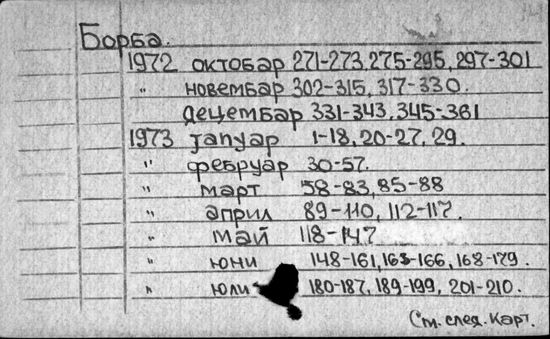 Борба.
1972 октобар 271-273, 275-295, 297-301
" новембар 302-315, 317-330.
децембар 331-343, 345-361
1973 јануар 1-18, 20-27, 29.
" фебруар 30-57.
" март 58-83, 85-88
" април 89-110, 112-117.
" май 118-147
" юни 148-161, 163-166, 168-179.
" юли 180-187, 189-199, 201-210.
См. след. карт.